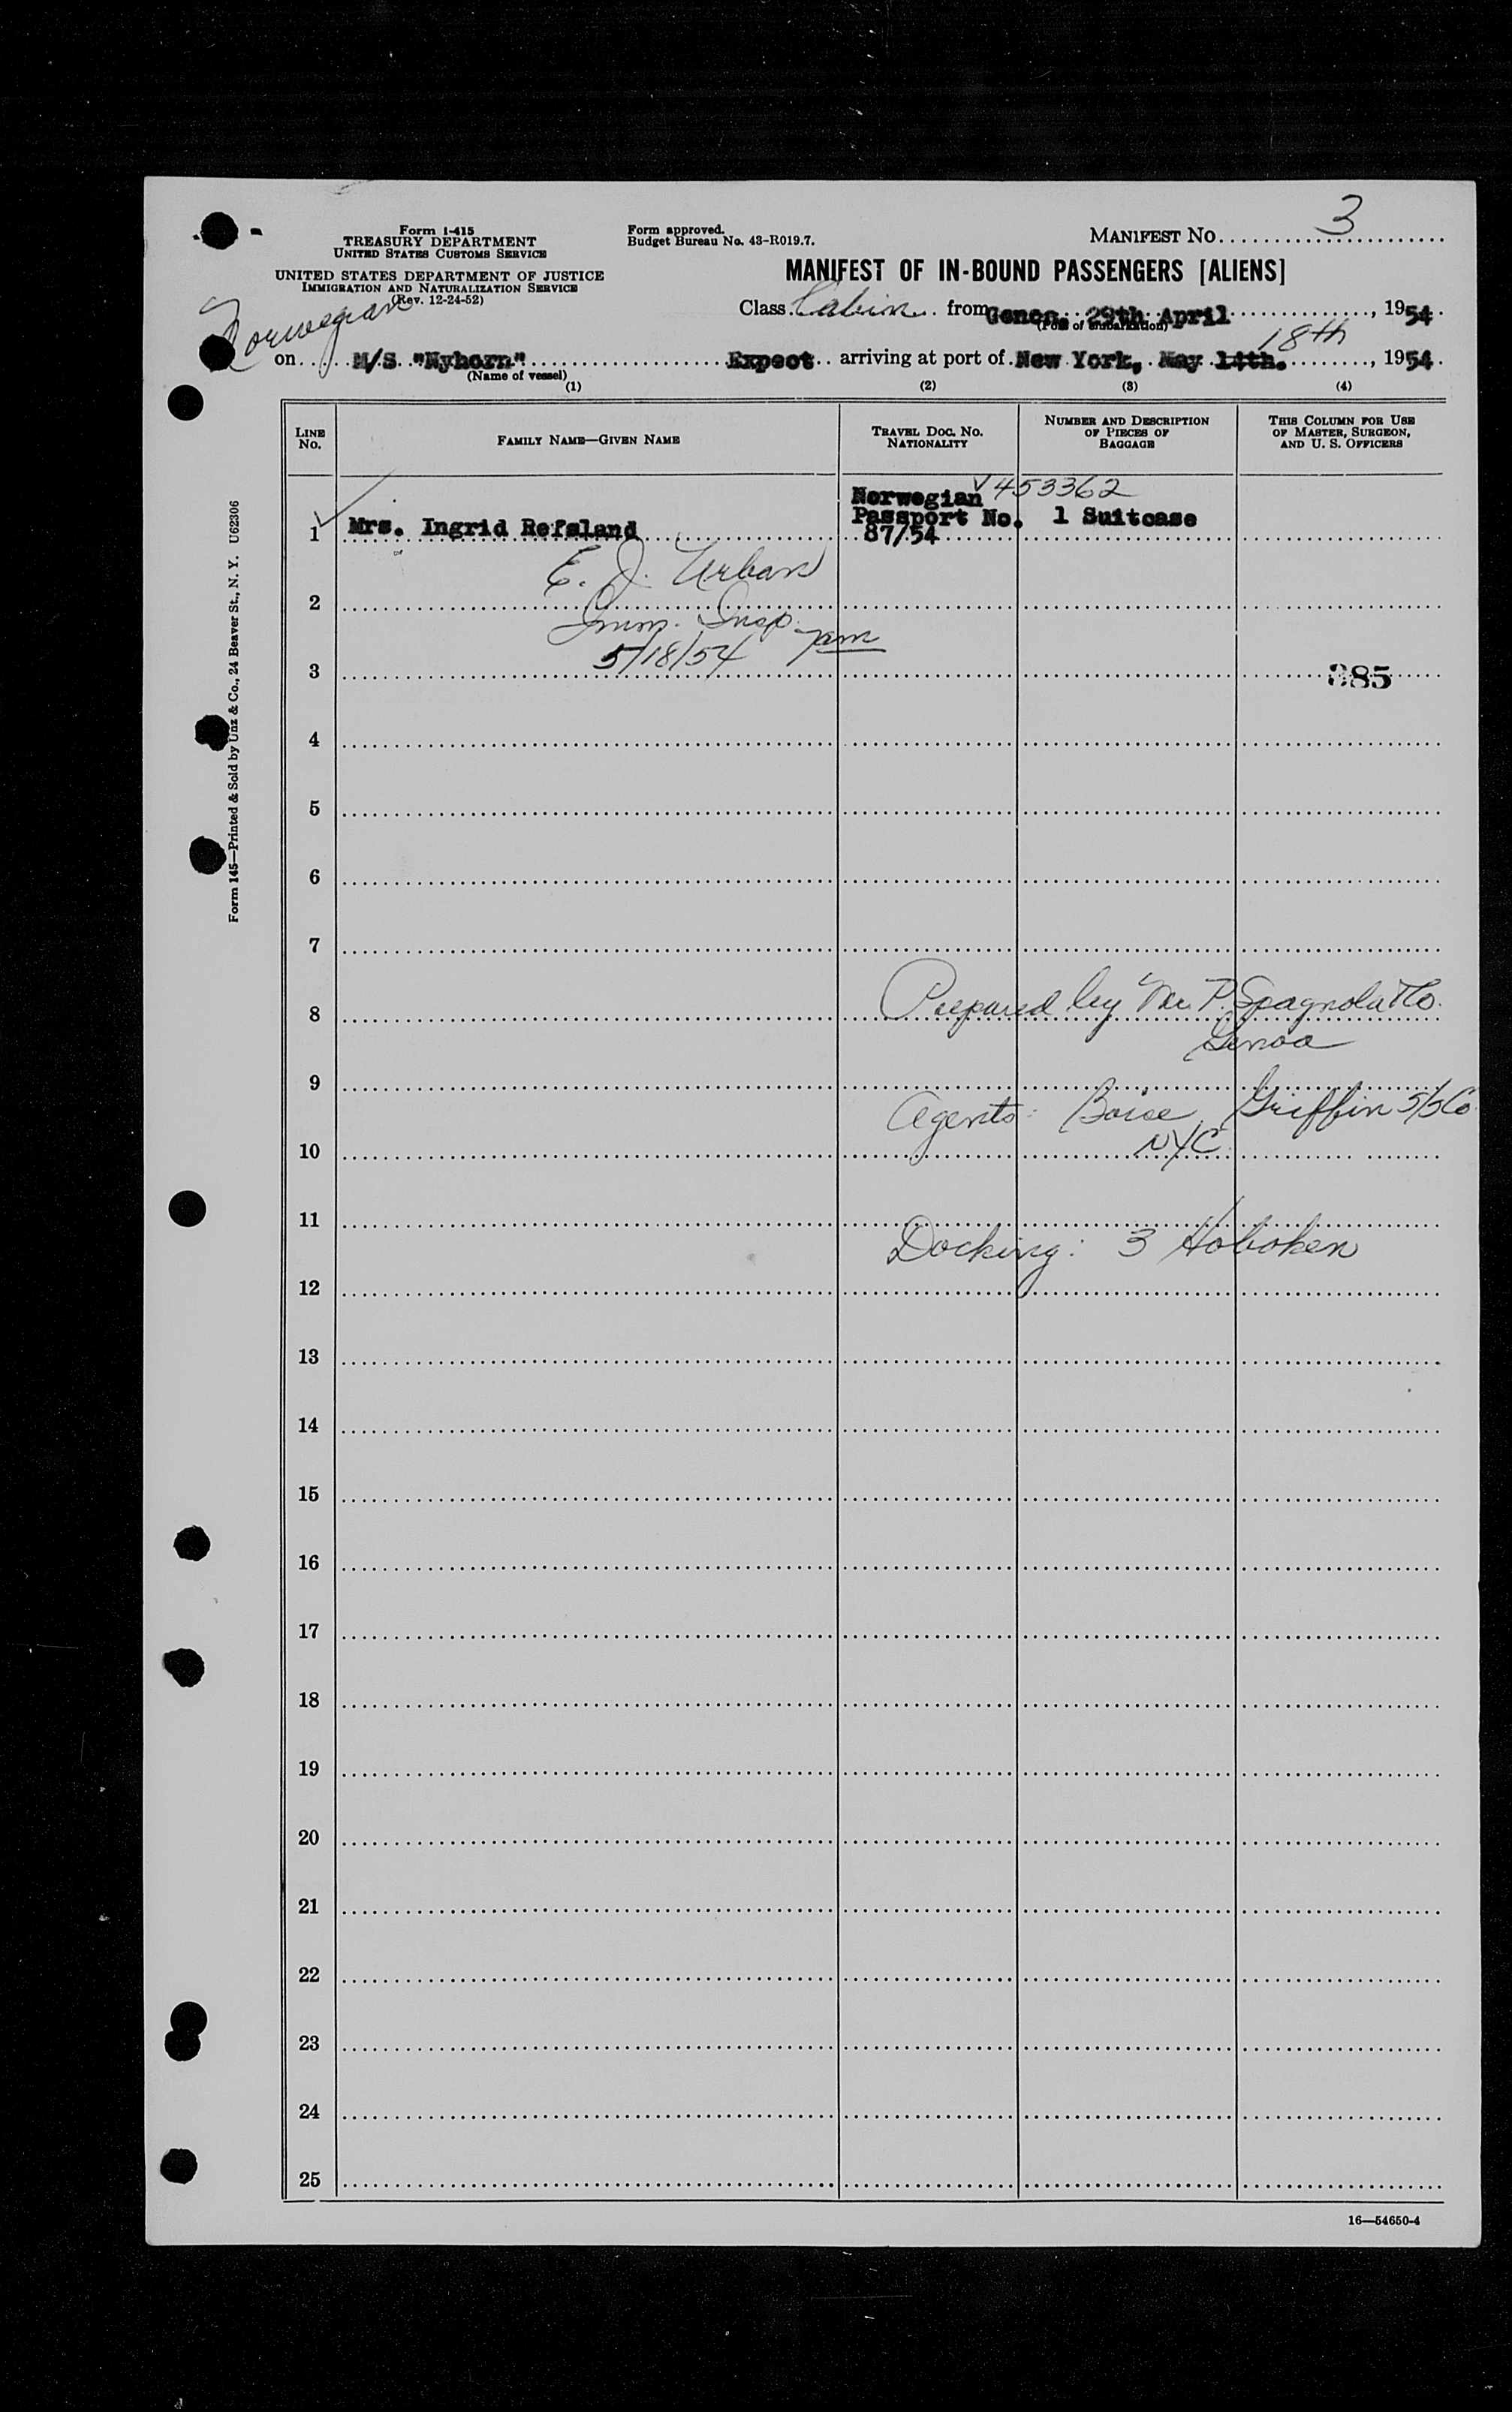 Form I-415
TREASURY DEPARTMENT
UNITED STATES CUSTOMS SERVICE
UNITED STATES DEPARTMENT OF JUSTICE
IMMIGRATION AND NATURALIZATION SERVICE
(Rev. 12-24-52)
Form approved.
Budget Bureau No. 43-R019.7.
MANIFEST No. 3
MANIFEST OF IN-BOUND PASSENGERS [ALIENS]
Class Cabin from Genoa, 29th April, 1954.
(Port of embarkation)
Norwegian
18th
on M/S "Nyhorn" Expect arriving at port of New York, May 14th., 1954.
(Name of vessel)
(1) (2) (3) (4)
LINE No.
FAMILY NAME—GIVEN NAME
TRAVEL DOC. NO. NATIONALITY
NUMBER AND DESCRIPTION OF PIECES OF BAGGAGE
THIS COLUMN FOR USE OF MASTER, SURGEON, AND U. S. OFFICERS
Norwegian V453362
1 Mrs. Ingrid Refsland Passport No. 1 Suitcase
87/54
E. J. Urban
2
Imm. Insp.
5/18/54 7am
3 385
4
5
6
7
8 Prepared by P. Spagnola & Co.
Genoa
9
Agents: Boise Griffin S/S Co
10 NYC
11
Docking: 3 Hoboken
12
13
14
15
16
17
18
19
20
21
22
23
24
25
16—54650-4
Form 145—Printed & Sold by Unz & Co., 24 Beaver St., N. Y. U62306